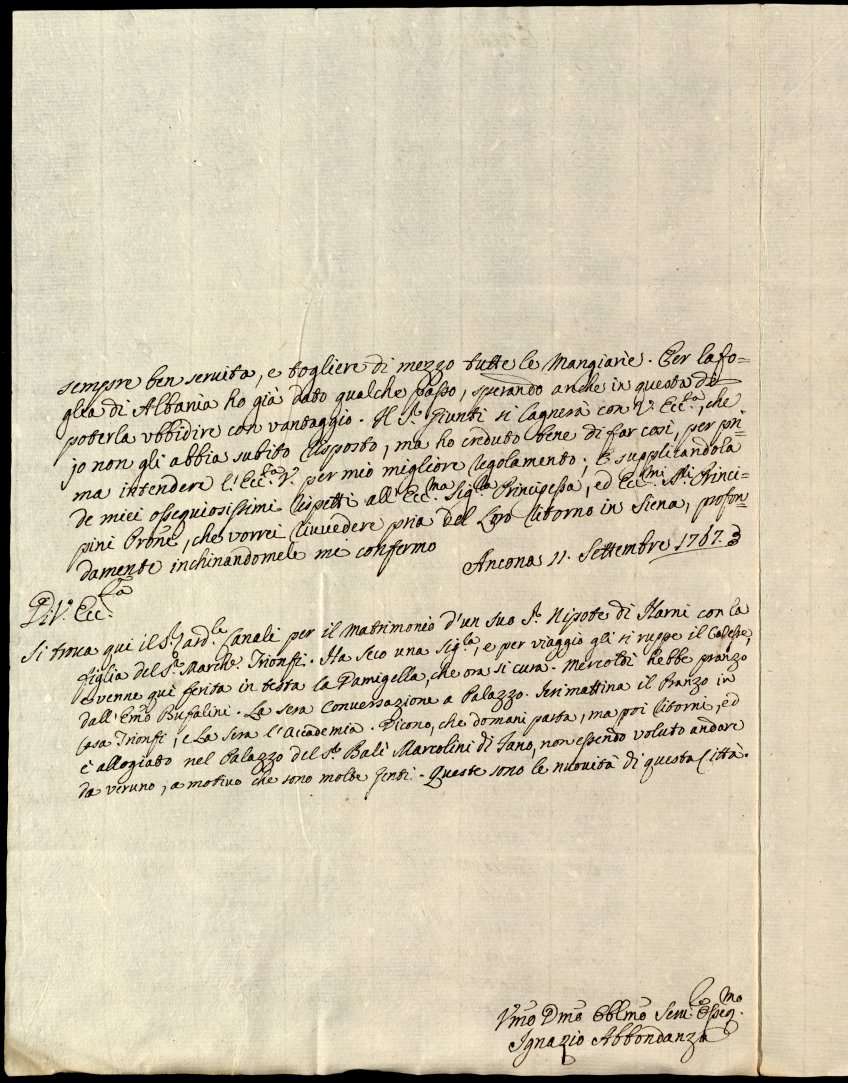 sempre ben servita, e togliere di mezzo tutte le Mangiarie. Per la fo=
glia di Albania ho già dato qualche passo, sperando anche in questa di
poterla ubbidire con vantaggio. Il Sr. Giunti si lagnerà con V. Ecc.za, che
jo non gli abbia subito risposto, ma ho creduto bene di far così, per pri=
ma intendere l'Ecc.za V. per mio migliore regolamento; E supplicandola
de miei ossequiosissimi rispetti all'Ecc.ma Sig.ra Principessa, ed Ecc.mi Sri. Princi=
pini Prone, che vorrei rivvedere pria del Loro ritorno in Siena, profon=
damente inchinandomele mi confermo
Ancona 11. Settembre 1767.
Di V. Ecc.za
Si trova qui il Sr. Card.le Canali per il Matrimonio d'un suo Sr. Nipote di Narni con la
figlia del Sr. March.e Trionfi. Ha seco una Sig.ra, e per viaggio gli si ruppe il Calesse,
e venne qui ferita in testa la Damigella, che ora si cura. Mercoldì hebbe pranzo
dall'Emo Bufalini. La sera Conversazione a Palazzo. Jeri mattina il Pranzo in
Casa Trionfi, e La Sera l'Accademia. Dicono, che domani parta, ma poi ritorni, ed
è allogiato nel Palazzo del Sr. Balì Marcolini di Fano, non essendo voluto andare
da veruno, a motivo che sono molte Genti. Queste sono le nuovità di questa Città.
Vmo Dmo Obblmo Serv. Osseq.mo
Ignazio Abbondanza